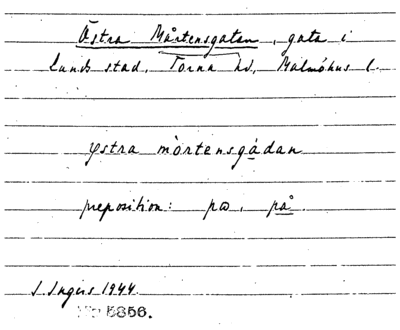 Östra Mårtensgatan, gata i
Lunds stad, Torna hd, Malmöhus l.
östra mòrtensgàdan
preposition: pɷ, på.
S. Ingers 1944
5856.